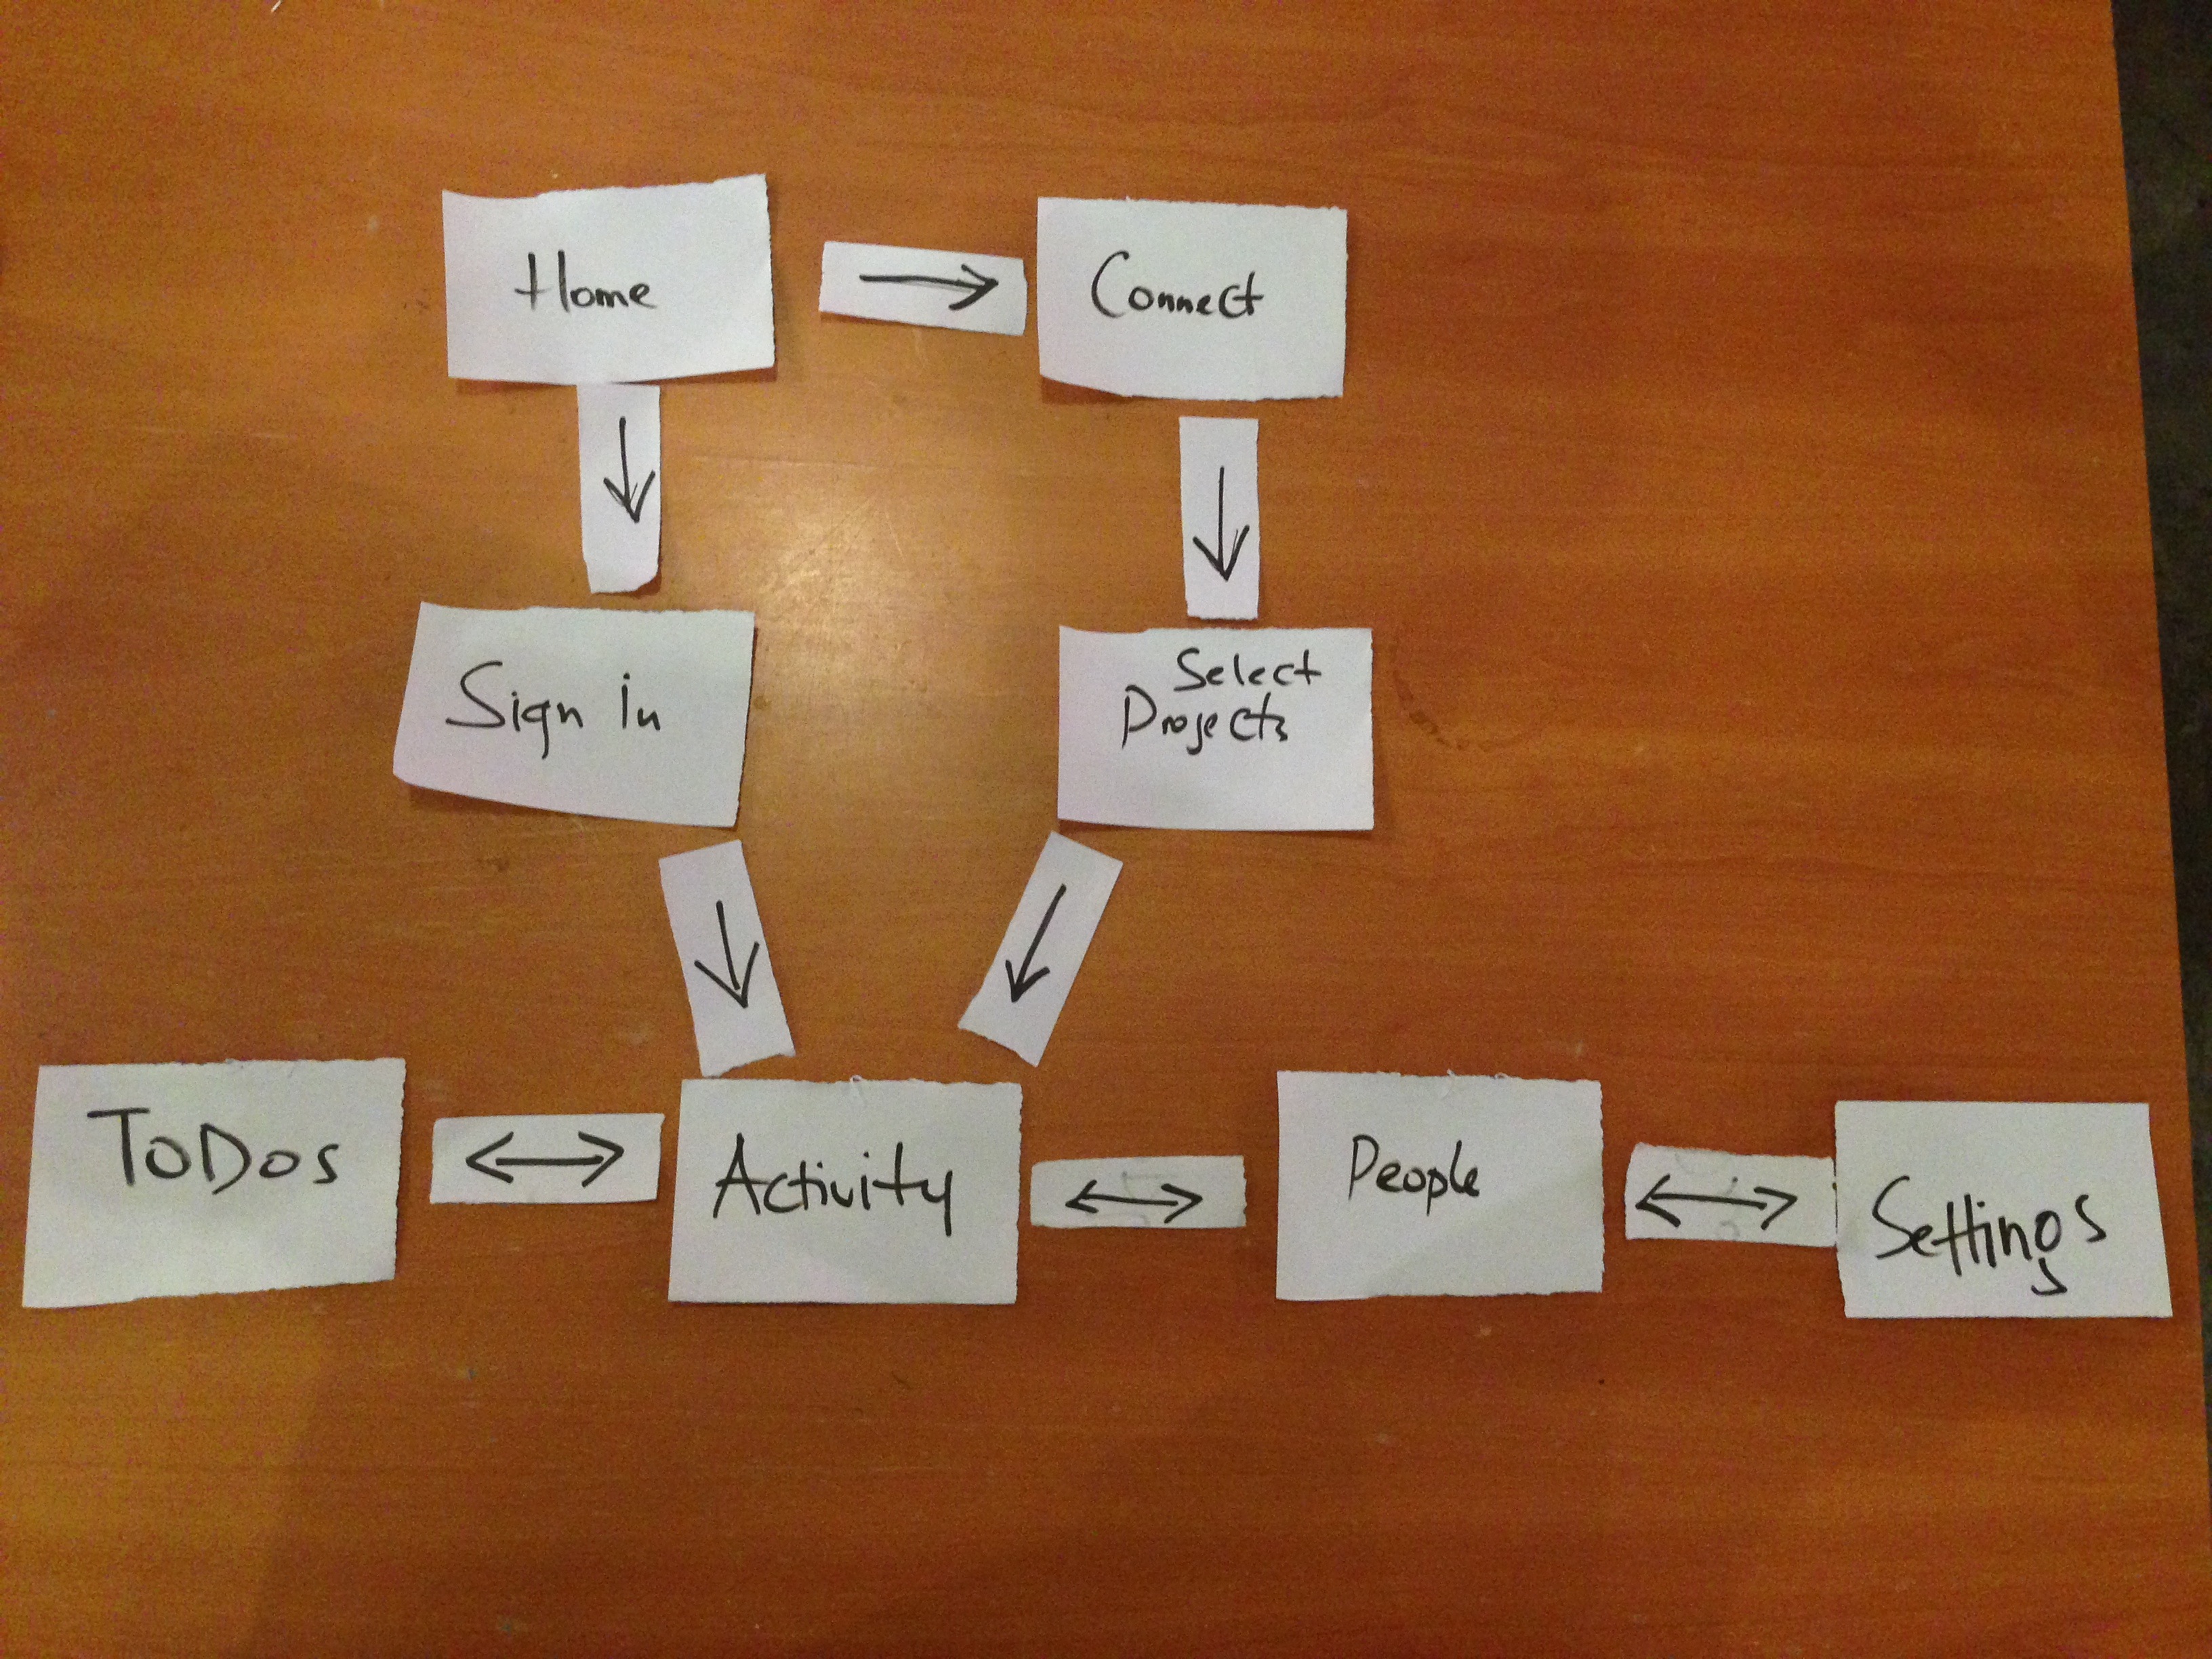 Home
Connect
Sign in
Select
Projects
ToDos
Activity
People
Settings